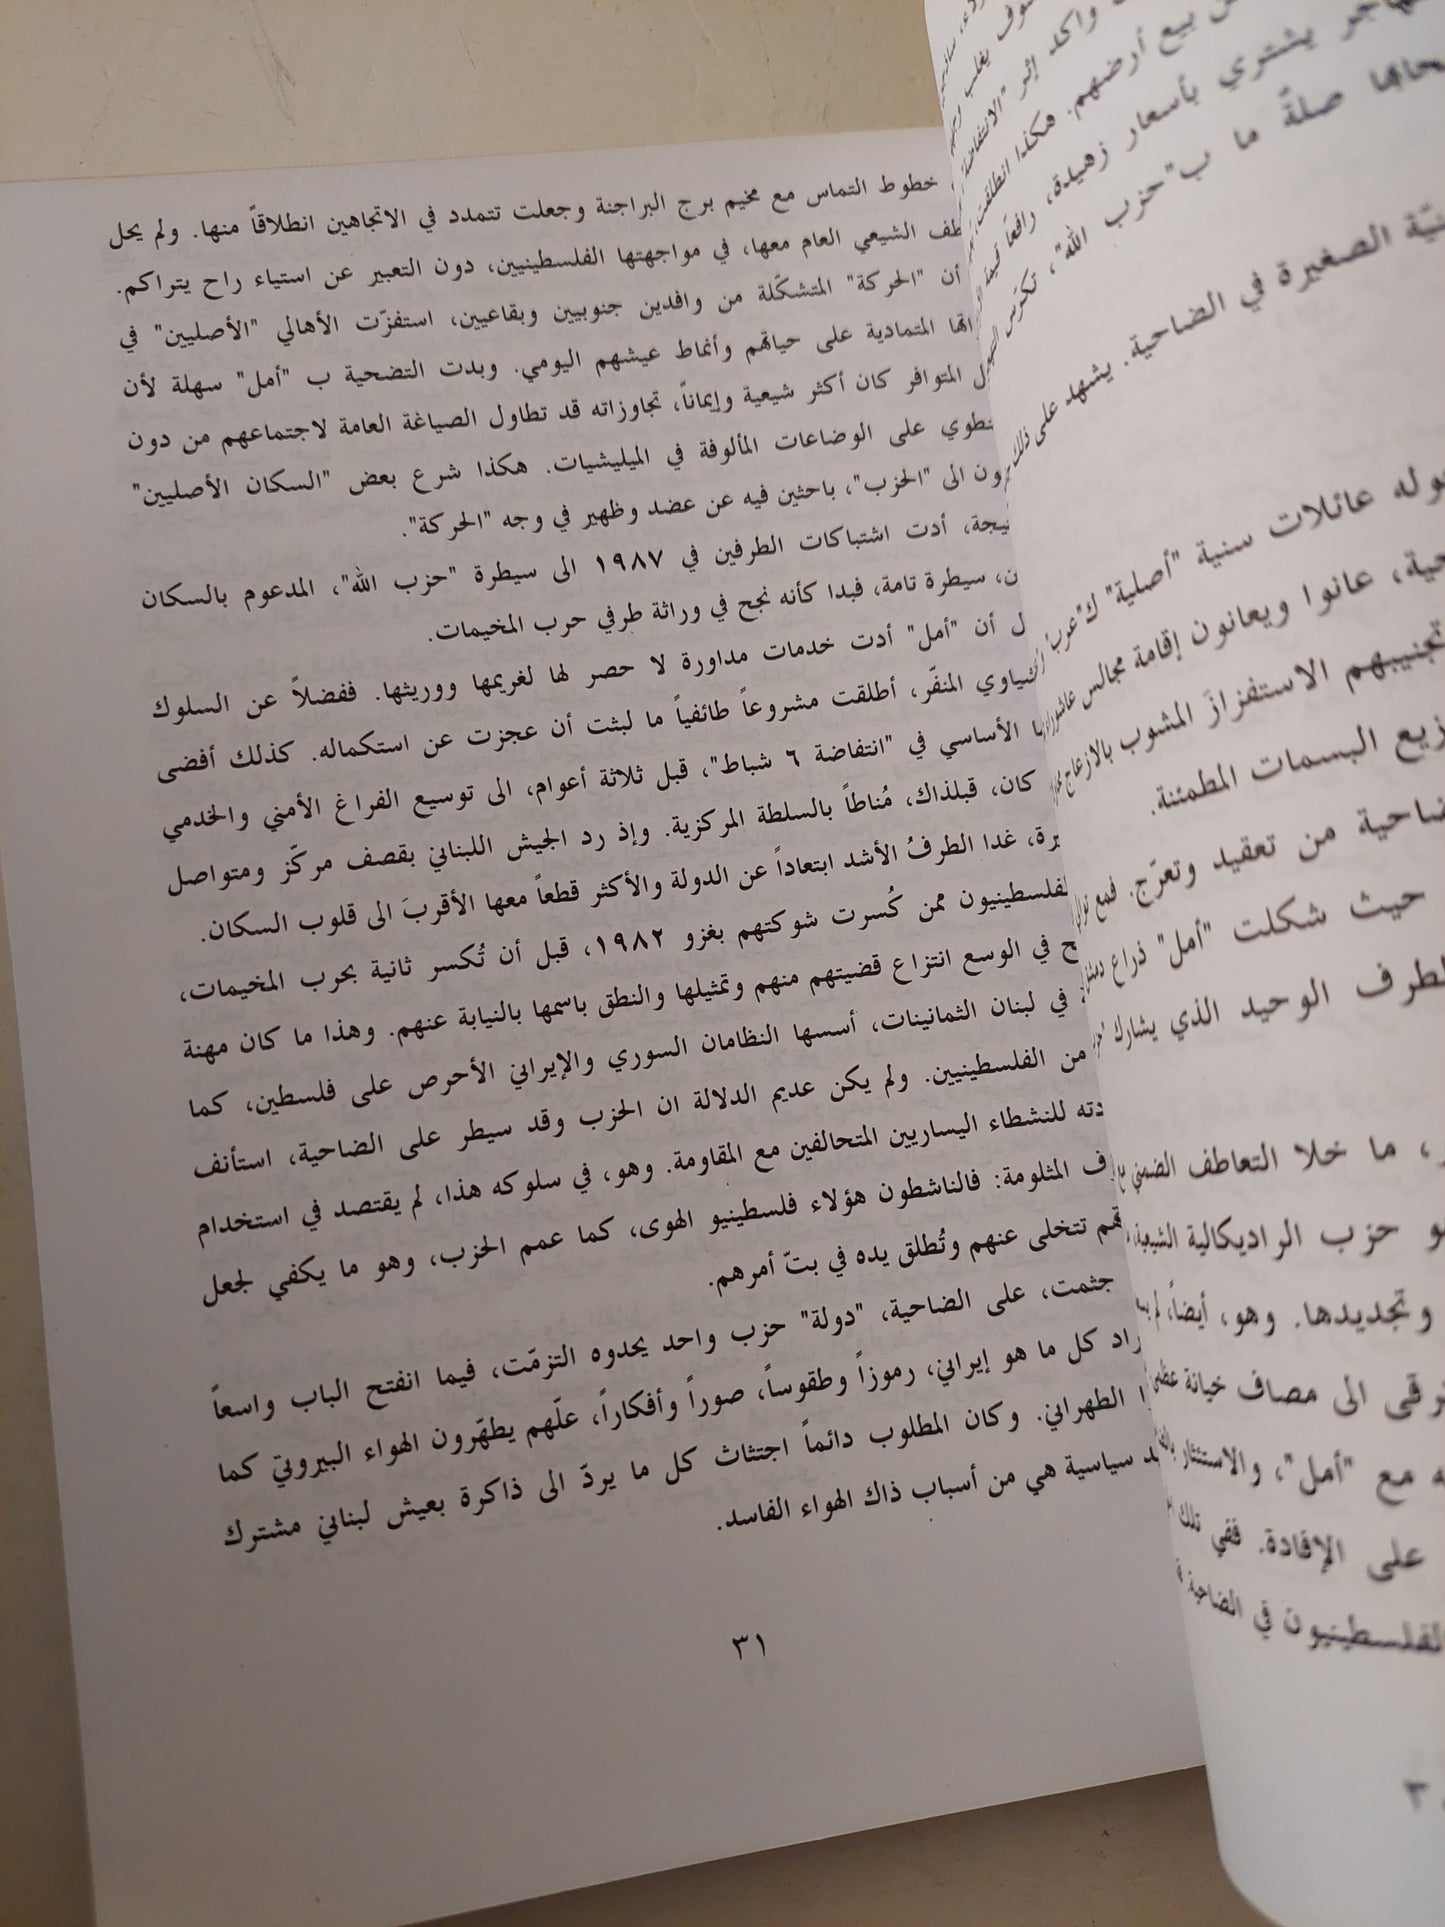 خطوط التماس مع مخيم برج البراجنة وجعلت تتمدد في الاتجاهين انطلاقاً منها. ولم يحل
الشيعي العام معها، في مواجهتها الفلسطينيين، دون التعبير عن استياء راح يتراكم.
أن "الحركة" المتشكّلة من وافدين جنوبيين وبقاعيين، استفزّت الأهالي "الأصليين" في
المتمادية على حياتهم وأنماط عيشهم اليومي. وبدت التضحية ب "أمل" سهلة لأن
المتوافر كان أكثر شيعية وإيماناً، تجاوزاته قد تطاول الصياغة العامة لاجتماعهم من دون
على الوضاعات المألوفة في الميليشيات. هكذا شرع بعض "السكان الأصليين"
الى "الحزب"، باحثين فيه عن عضد وظهير في وجه "الحركة".
أدت اشتباكات الطرفين في ١٩٨٧ الى سيطرة "حزب الله"، المدعوم بالسكان
سيطرة تامة، فبدا كأنه نجح في وراثة طرفي حرب المخيمات.
أن "أمل" أدت خدمات مداورة لا حصر لها لغريمها ووريثها. ففضلاً عن السلوك
المنفّر، أطلقت مشروعاً طائفياً ما لبثت أن عجزت عن استكماله. كذلك أفضى
الأساسي في "انتفاضة ٦ شباط"، قبل ثلاثة أعوام، الى توسيع الفراغ الأمني والخدمي
كان، قبلذاك، مُناطاً بالسلطة المركزية. وإذ رد الجيش اللبناني بقصف مركّز ومتواصل
غدا الطرفُ الأشد ابتعاداً عن الدولة والأكثر قطعاً معها الأقربَ الى قلوب السكان.
ممن كُسرت شوكتهم بغزو ١٩٨٢، قبل أن تُكسر ثانية بحرب المخيمات،
في الوسع انتزاع قضيتهم منهم وتمثيلها والنطق باسمها بالنيابة عنهم. وهذا ما كان مهنة
في لبنان الثمانينات، أسسها النظامان السوري والإيراني الأحرص على فلسطين، كما
من الفلسطينيين. ولم يكن عديم الدلالة ان الحزب وقد سيطر على الضاحية، استأنف
للنشطاء اليساريين المتحالفين مع المقاومة. وهو، في سلوكه هذا، لم يقتصد في استخدام
المثلومة: فالناشطون هؤلاء فلسطينيو الهوى، كما عمم الحزب، وهو ما يكفي لجعل
تتخلى عنهم وتُطلق يده في بتّ أمرهم.
جثمت، على الضاحية، "دولة" حزب واحد يحدوه التزمّت، فيما انفتح الباب واسعاً
كل ما هو إيراني، رموزاً وطقوساً، صوراً وأفكاراً، علّهم يطهّرون الهواء البيروتيّ كما
الطهراني. وكان المطلوب دائماً اجتثاث كل ما يردّ الى ذاكرة بعيش لبناني مشترك
سياسية هي من أسباب ذاك الهواء الفاسد.
٣١
بيع أرضهم. هكذا انطلقت
يشتري بأسعار زهيدة، رافعاً قيمة
صلةً ما ب"حزب الله"،
الصغيرة في الضاحية. يشهد على ذلك
عائلات سنية "أصلية"
عانوا ويعانون إقامة مجالس عاشوراء
تجنيبهم الاستفزازَ المشوب بالازعاج
البسمات المطمئنة.
من تعقيد وتعرّج. فمع
حيث شكلت "أمل" ذراع
الوحيد الذي يشارك
ما خلا التعاطف الضمني مع
حزب الراديكالية الشيعية
وتجديدها. وهو، أيضاً، لم
الى مصاف خيانة عظمى
مع "أمل"، والاستئثار
على الإفادة. ففي تلك
الفلسطينيون في الضاحية